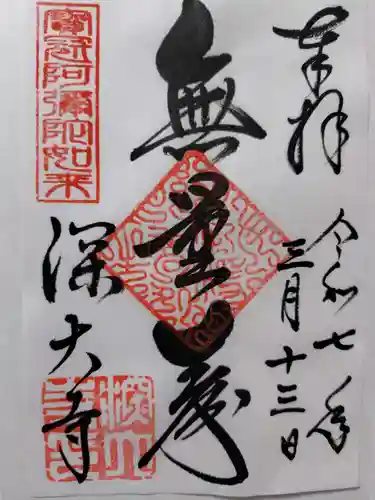 奉拝
令和七年
三月十三日
無量壽
寳冠阿彌陀如来
深大寺